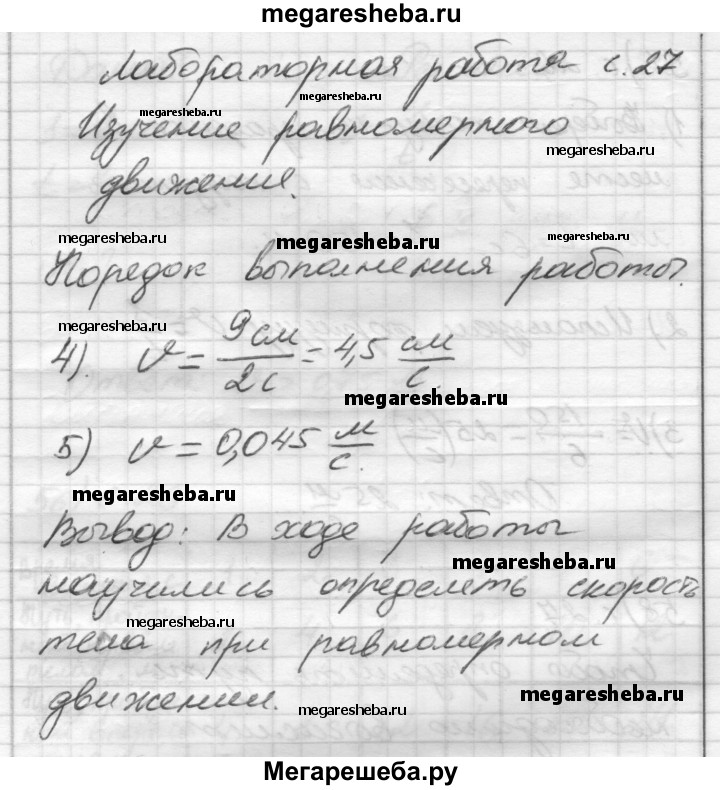 megaresheba.ru
Лабораторная работа с. 27
megaresheba.ru megaresheba.ru
Изучение равномерного
megaresheba.ru
движения.
megaresheba.ru megaresheba.ru megaresheba.ru
Порядок выполнения работы.
megaresheba.ru
4). v = 9 см / 2 с = 4,5 см / с.
megaresheba.ru
5) v = 0,045 м / с.
megaresheba.ru
Вывод: В ходе работы
megaresheba.ru
научились определять скорость
megaresheba.ru
тела при равномерном
megaresheba.ru
движении.
megaresheba.ru
Мегарешеба.ру